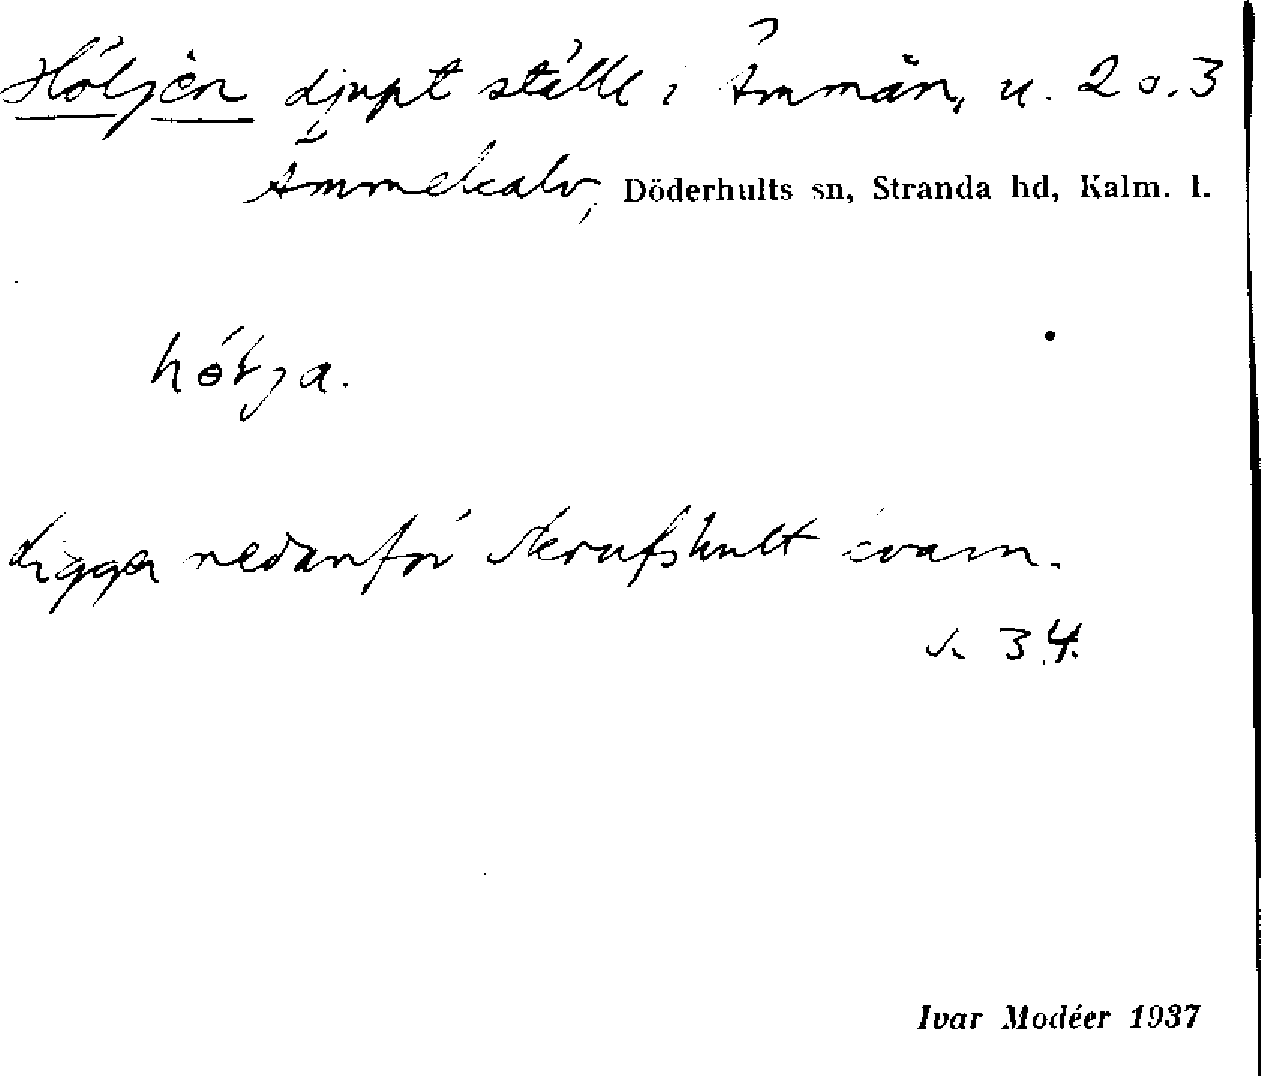 Höljen djupt ställe i Ämmån, u. 2 o. 3
Ämmekalv, Döderhults sn, Stranda hd, Kalm. l.
Ligger nedanför Skrufshult kvarn.
s. 34.
Ivar Modéer 1937